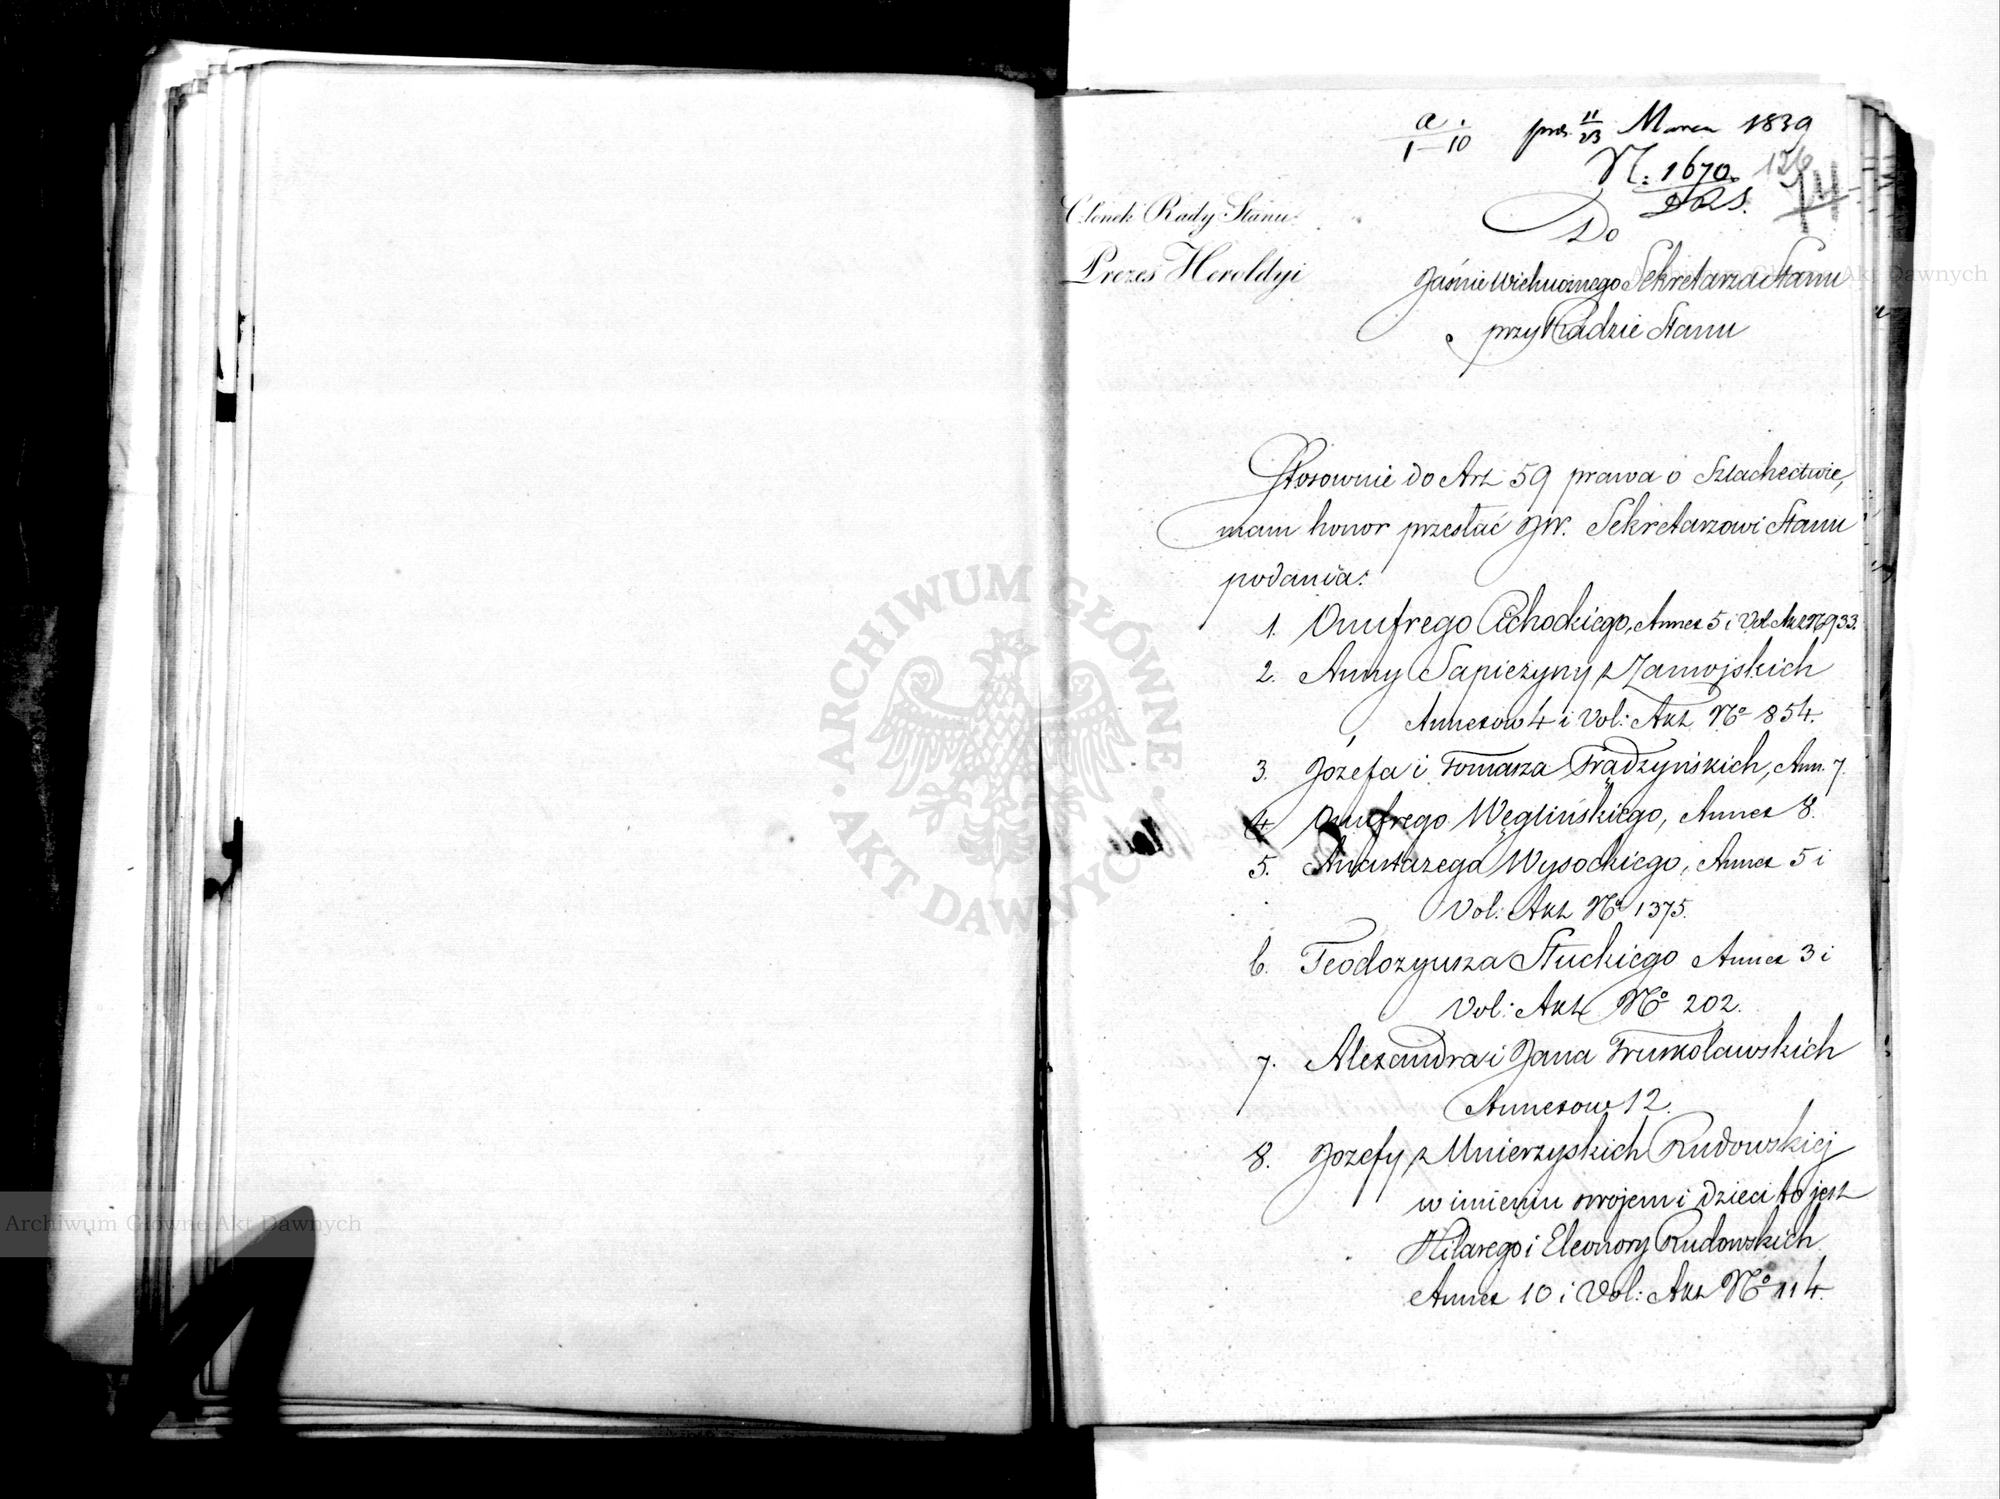 a.
1–10
pres. 11/23 Marca 1839
N: 1670.
DRS.
Członek Rady Stanu
Prezes Heroldyi
Do
Jaśnie Wielmożnego Sekretarza Stanu
przy Radzie Stanu
Stosownie do Art 59 prawa o Szlachectwie,
mam honor przesłać JW. Sekretarzowi Stanu
podania:
1. Onufrego Cichockiego, Annex 5 i Vol Akt No 933.
2. Anny Sapieżyny z Zamojskich
Annexow 4 i Vol: Akt No 854.
3. Józefa i Tomasza Trądzyńskich, Ann. 7.
4. Onufrego Węglińskiego, Annex 8.
5. Anastazego Wysockiego, Annex 5 i
Vol: Akt No 1375.
6. Teodozyusza Słuckiego Annex 3 i
Vol: Akt No 202.
7. Alexandra i Jana Trunkolawskich
Annexow 12.
8. Jozefy z Mnierzyskich Rudowskiej
w imieniu swojem i dzieci to jest
Hilarego i Eleonory Rudowskich
Annex 10 i Vol: Akt No 114.
ARCHIWUM GŁÓWNE AKT DAWNYCH
Archiwum Główne Akt Dawnych
Archiwum Główne Akt Dawnych